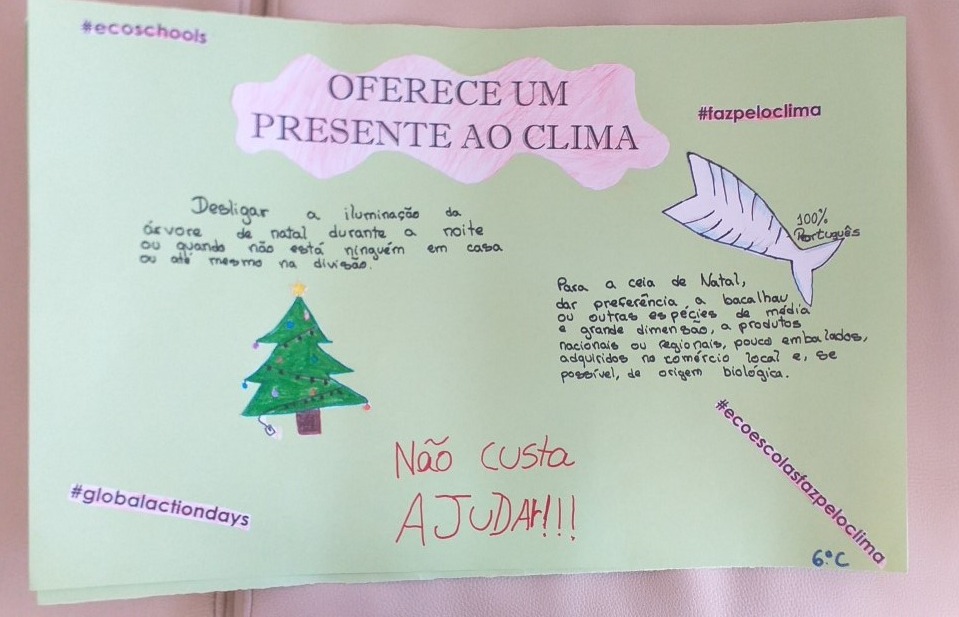 #ecoschools
OFERECE UM
PRESENTE AO CLIMA
#fazpeloclima
Desligar a iluminação da
árvore de natal durante a noite
ou quando não está ninguém em casa
ou até mesmo na divisão.
100%
Português
Para a ceia de Natal,
dar preferência a bacalhau
ou outras espécies de média
e grande dimensão, a produtos
nacionais ou regionais, pouco embalados,
adquiridos no comércio local e, se
possível, de origem biológica.
Não custa
AJUDAr!!!
#globalactiondays
#ecoescolasfazpeloclima
6ºC